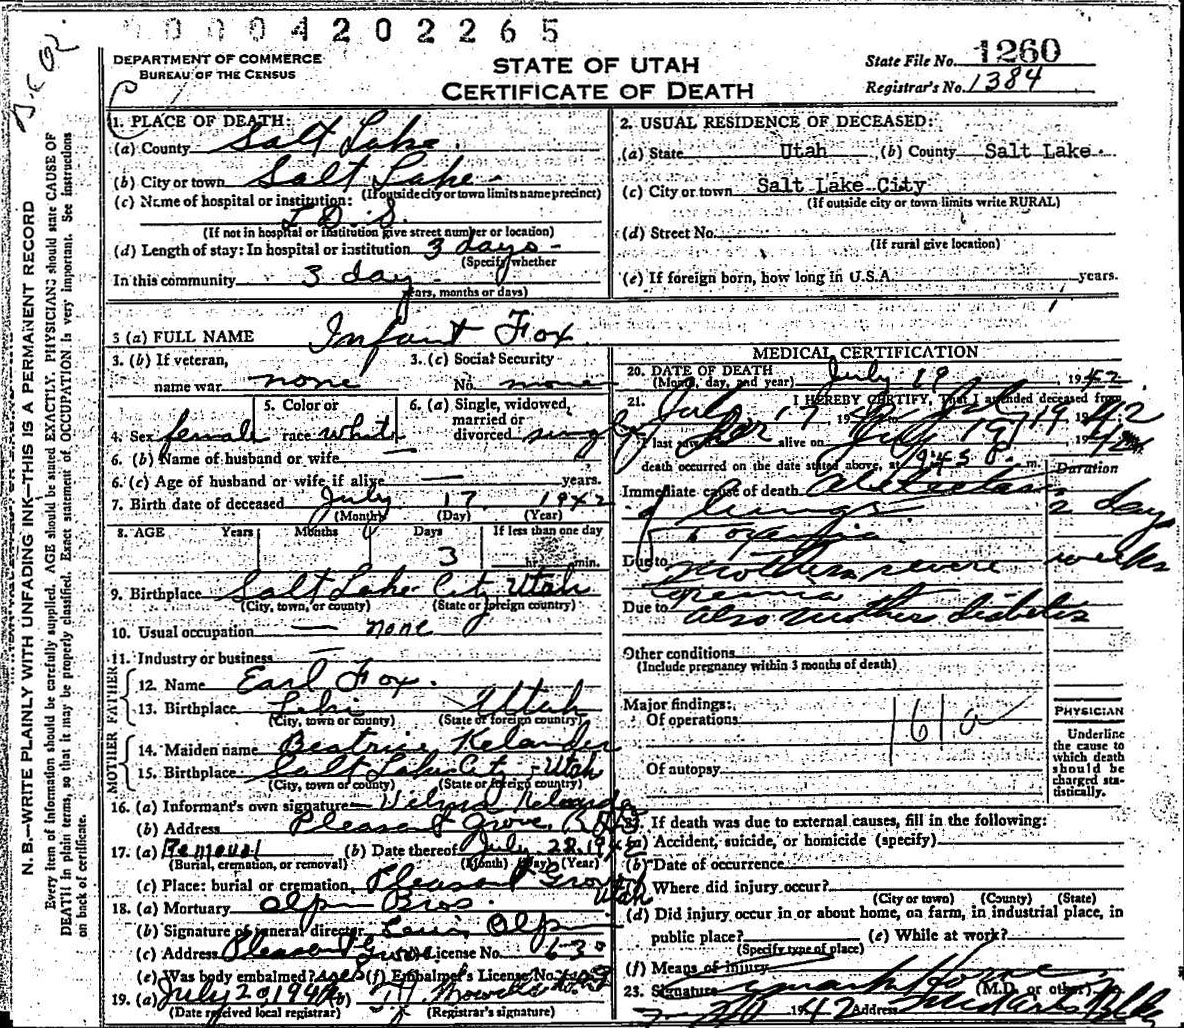 0004202265
DEPARTMENT OF COMMERCE
BUREAU OF THE CENSUS
STATE OF UTAH
CERTIFICATE OF DEATH
State File No. 1260
Registrar's No. 1384
N. B.—WRITE PLAINLY WITH UNFADING INK—THIS IS A PERMANENT RECORD
Every item of information should be carefully supplied. AGE should be stated EXACTLY. PHYSICIANS should state CAUSE OF
DEATH in plain terms, so that it may be properly classified. Exact statement of OCCUPATION is very important. See instructions
on back of certificate.
1. PLACE OF DEATH:
(a) County Salt Lake
(b) City or town Salt Lake
(If outside city or town limits name precinct)
(c) Name of hospital or institution:
L.D.S.
(If not in hospital or institution give street number or location)
(d) Length of stay: In hospital or institution 3 days
(Specify whether
In this community 3 day
years, months or days)
2. USUAL RESIDENCE OF DECEASED:
(a) State Utah (b) County Salt Lake
(c) City or town Salt Lake City
(If outside city or town limits write RURAL)
(d) Street No.
(If rural give location)
(e) If foreign born, how long in U.S.A. years.
3 (a) FULL NAME Infant Fox
3. (b) If veteran, name war none
3. (c) Social Security No. none
4. Sex female
5. Color or race white
6. (a) Single, widowed, married or divorced single
6. (b) Name of husband or wife —
6. (c) Age of husband or wife if alive — years.
7. Birth date of deceased July 17 1942
(Month) (Day) (Year)
8. AGE Years Months Days If less than one day
3 hr. min.
9. Birthplace Salt Lake City Utah
(City, town, or county) (State or foreign country)
10. Usual occupation — none
11. Industry or business —
FATHER
12. Name Earl Fox.
13. Birthplace Lehi Utah
(City, town or county) (State or foreign country)
MOTHER
14. Maiden name Beatrice Kelander
15. Birthplace Salt Lake City - Utah
(City, town or county) (State or foreign country)
16. (a) Informant's own signature
(b) Address Pleasant Grove
17. (a) Removal (b) Date thereof July
(Burial, cremation, or removal) (Month) (Day) (Year)
(c) Place: burial or cremation Pleasant Grove Utah
18. (a) Mortuary Bros.
(b) Signature of funeral director
(c) Address Pleasant Grove License No. 630
(e) Was body embalmed? (f) Embalmer's License No.
19. (a) July 20 1942 (b)
(Date received local registrar) (Registrar's signature)
MEDICAL CERTIFICATION
20. DATE OF DEATH
(Month, day, and year) July 19, 1942
21. I HEREBY CERTIFY, That I attended deceased from
July 17, 19 to July 19 1942
I last saw her alive on July 19, 1942
death occurred on the date stated above, at 9:45 P. m.
Duration
Immediate cause of death Atelectasis
of lungs 2 days
Toxemia
Due to mothers severe weeks
Due to also mothers diabetes
Other conditions
(Include pregnancy within 3 months of death)
Major findings:
Of operations
161a
Of autopsy
PHYSICIAN
Underline
the cause to
which death
should be
charged sta-
tistically.
22. If death was due to external causes, fill in the following:
(a) Accident, suicide, or homicide (specify)
(b) Date of occurrence
(c) Where did injury occur?
(City or town) (County) (State)
(d) Did injury occur in or about home, on farm, in industrial place, in
public place? (e) While at work?
(Specify type of place)
(f) Means of injury
23. Signature (M.D. or other)
1942 Address